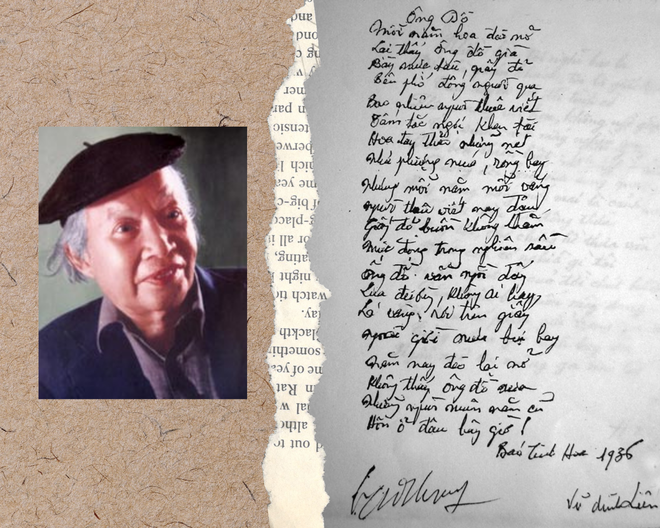 Ông Đồ
Mỗi năm hoa đào nở
Lại thấy ông đồ già
Bầy mực tàu, giấy đỏ
Bên phố đông người qua
Bao nhiêu người thuê viết
Tấm tắc ngợi khen tài
Hoa tay thảo những nét
Như phượng múa, rồng bay
Nhưng mỗi năm mỗi vắng
Người thuê viết nay đâu
Giấy đỏ buồn không thắm
Mực đọng trong nghiên sầu
Ông đồ vẫn ngồi đấy
không ai hay
Lá vàng, rơi trên giấy
Ngoài giời mưa bụi bay
Năm nay đào lại nở
Không thấy ông đồ xưa
Những người muôn năm cũ
Hồn ở đâu bây giờ!
Báo Tinh Hoa 1936
Vũ Đình Liên
d out to
altho
ial w
n Rat
ne of yea
somethin
lackth
lay.
watch tic
night
ating,
or all i
g-place
of big-c
me year
nich l
berwe
tensic
n par
mer
and